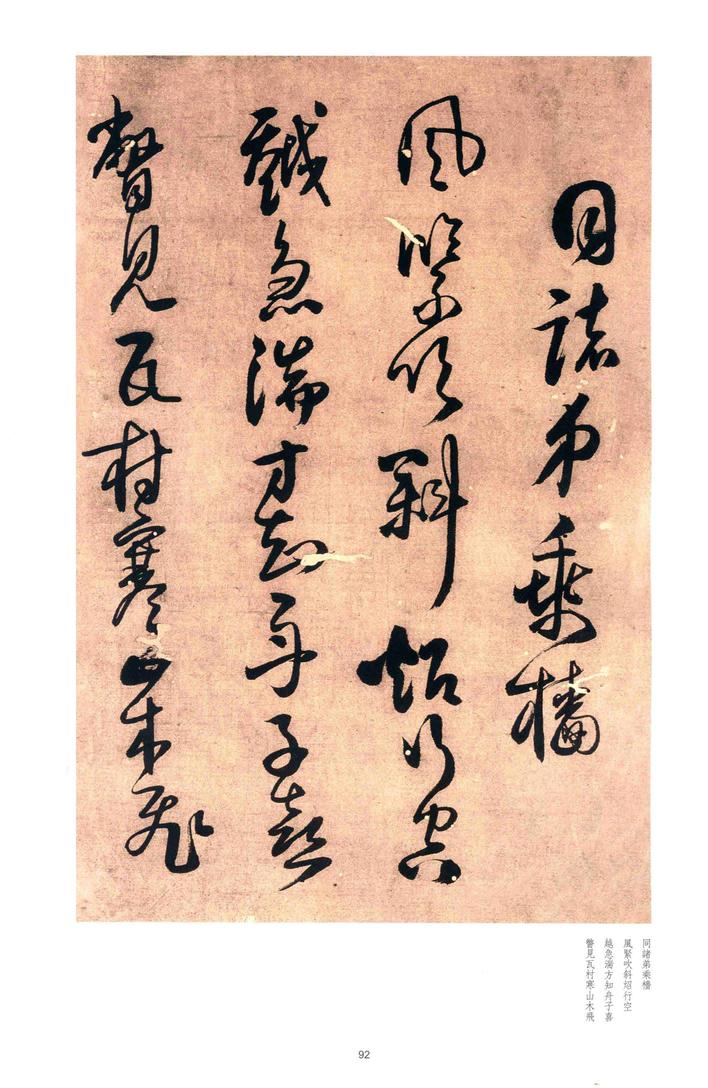 同諸弟乘檣
風緊吹斜炤行空
越急湍方知舟子喜
瞥見瓦村寒山木飛
同諸弟乘檣
風緊吹斜炤行空
越急湍方知舟子喜
瞥見瓦村寒山木飛
92